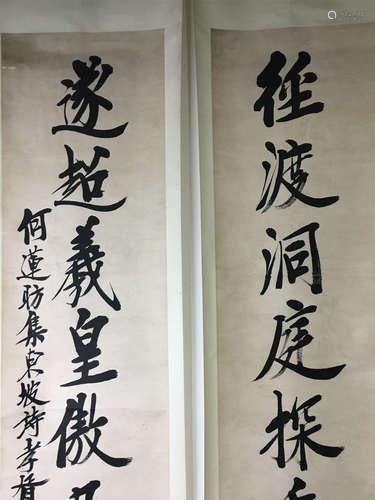 徑渡洞庭探
遂超羲皇傲
何蓮昉集東坡詩孝胥